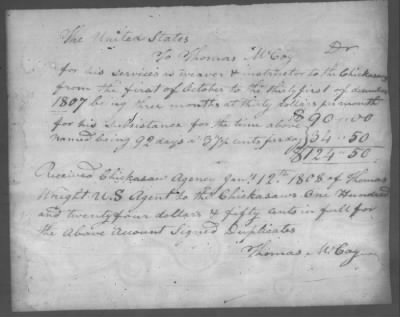 The United States
To Thomas McCoy Dr
for his services is weaver & instructor to the Chickasaw
from the first of October to the thirty first of december
1807 being three months at thirty dollars per month $90-00
for his Subsistance for the time above
named being 92 days a 37½ cents per day 34-50
$124-50
Received Chickasaw Agency Jany 12th 1808 of Thomas
Wright U.S Agent to the Chickasaws One Hundred
and twenty four dollars & fifty cents in full for
the Above Account Signed Duplicates
Thomas McCoy